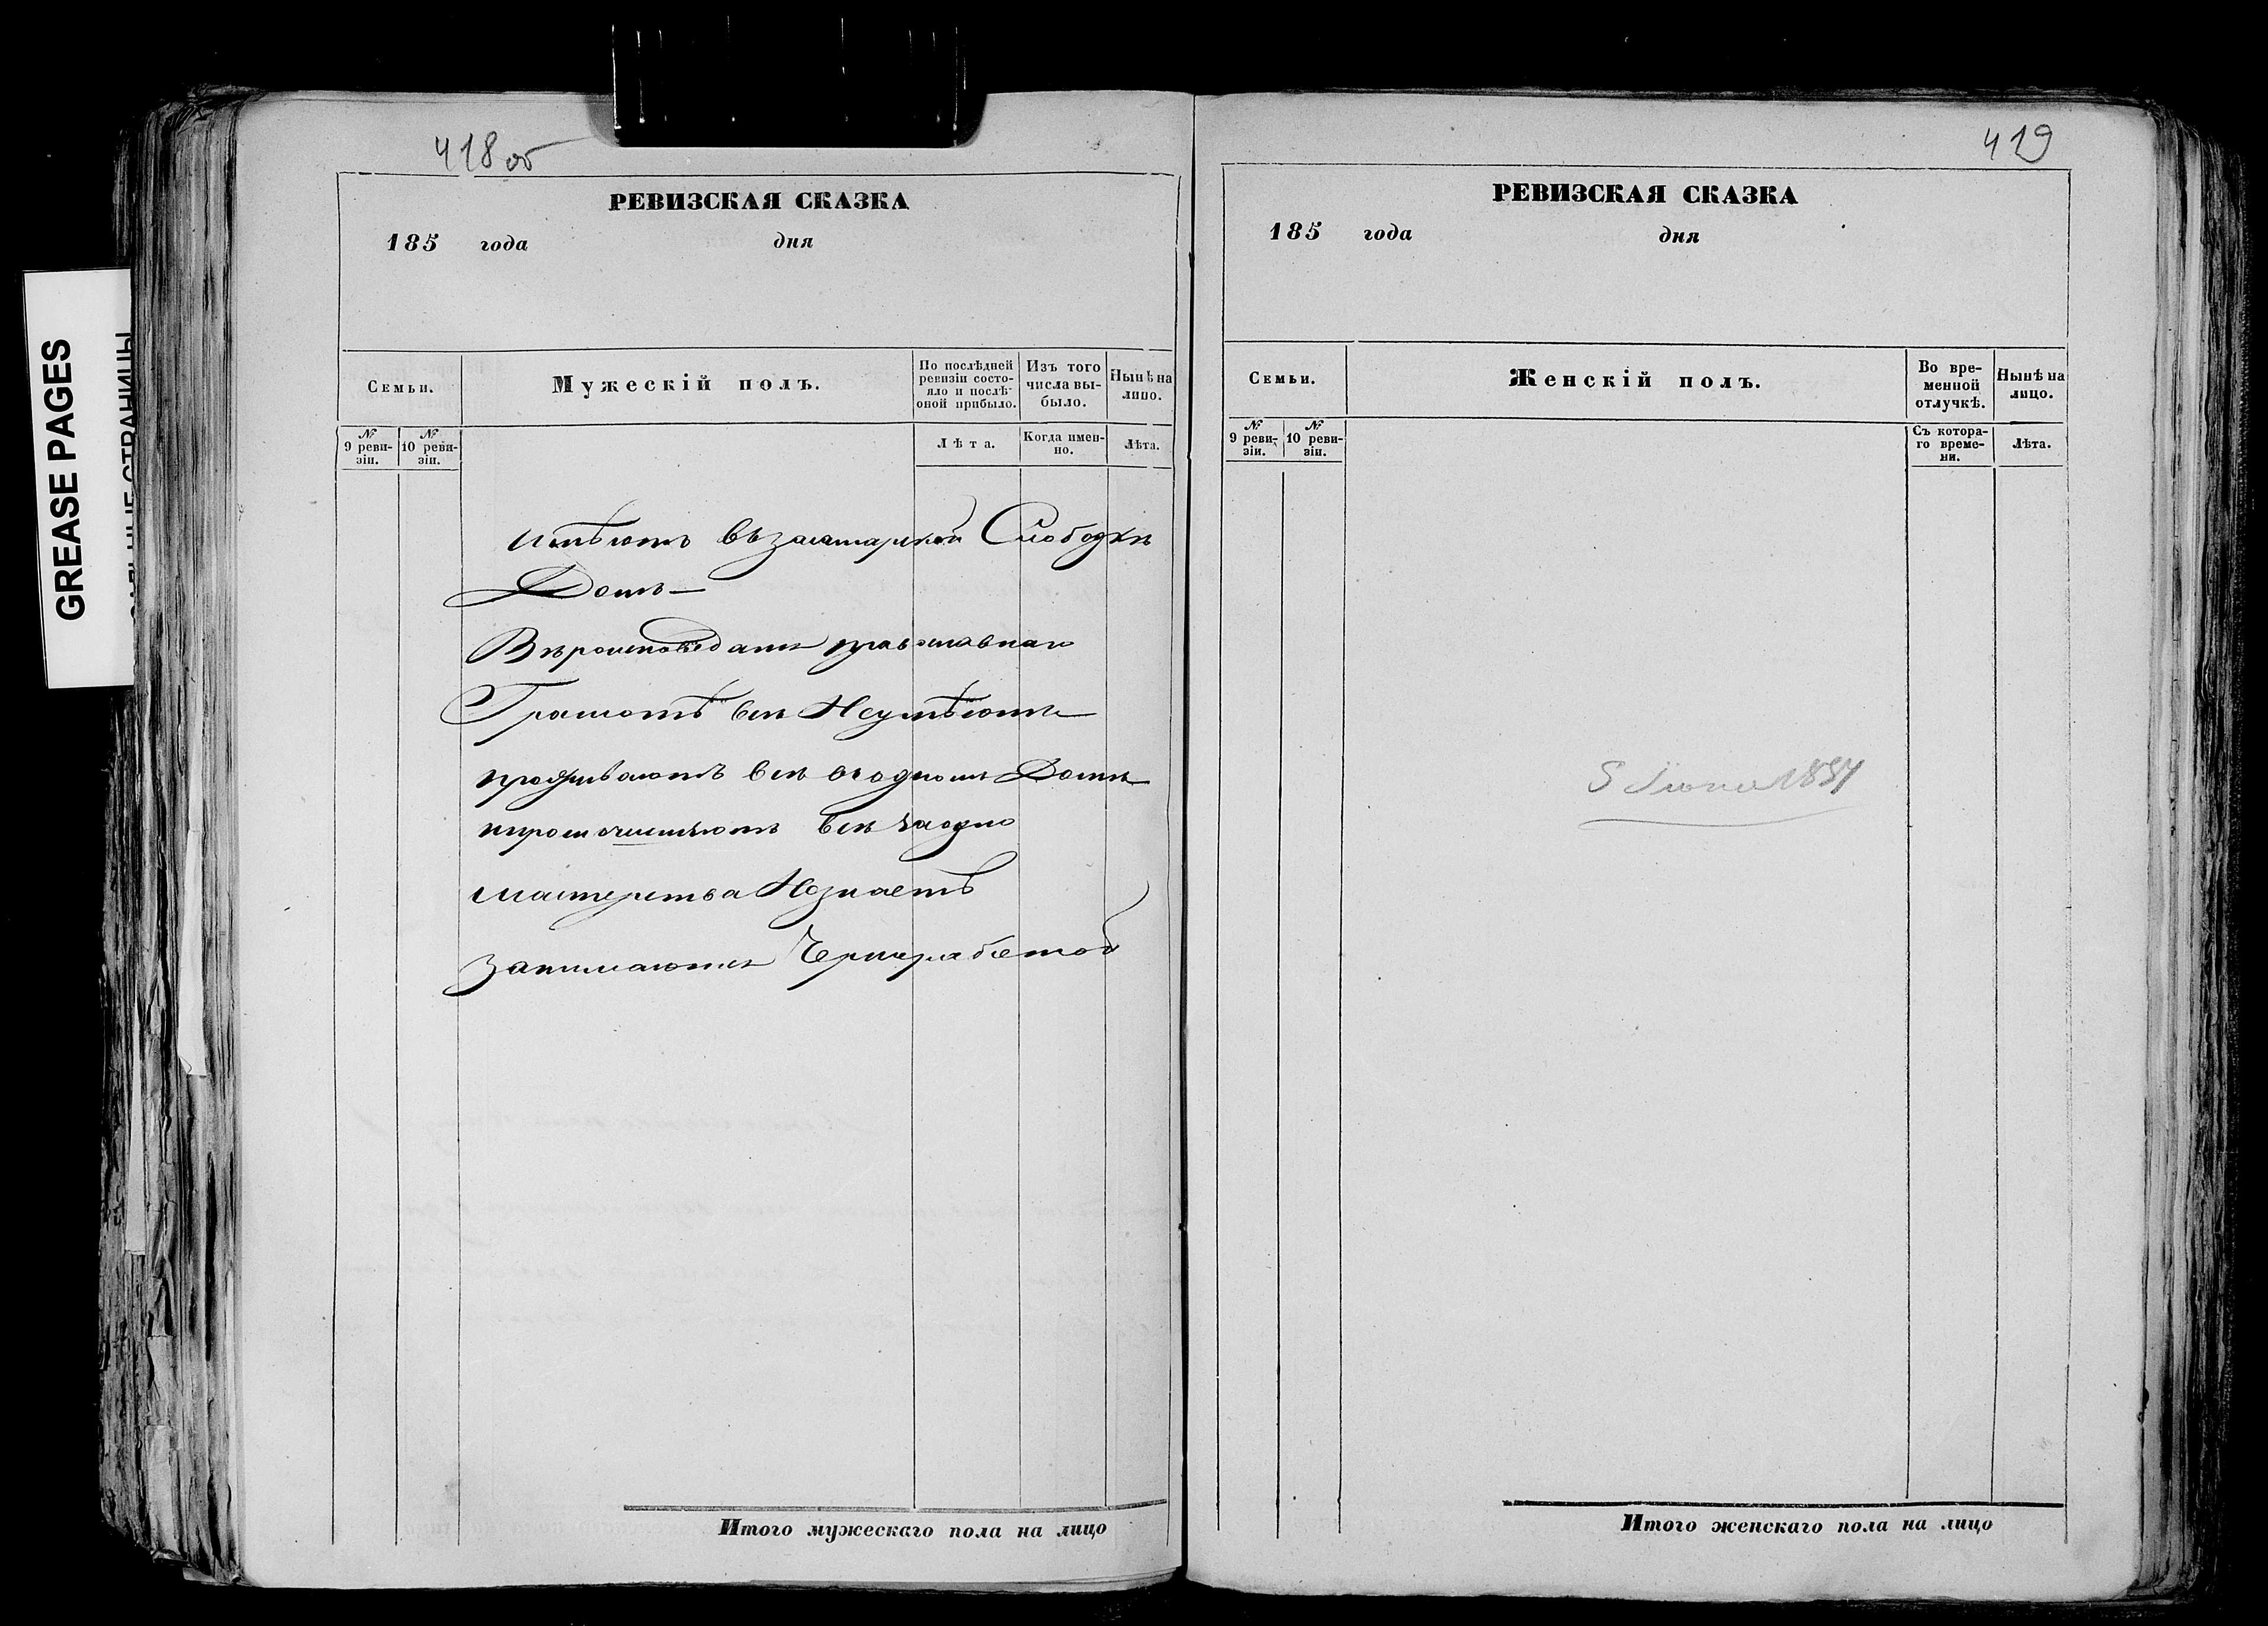 GREASE PAGES
418 об
РЕВИЗСКАЯ СКАЗКА
185 года дня
Семьи.
Мужескій полъ.
По послѣдней ревизіи состояло и послѣ оной прибыло.
Изъ того числа выбыло.
Нынѣ на лицо.
№ 9 ревизіи.
№ 10 ревизіи.
Лѣта.
Когда именно.
Лѣта.
имѣютъ въ заставской Слободкѣ
Домъ
Вѣроисповеданія православнаго
Грамотѣ всѣ Неумѣютъ
проживаютъ всѣ водномъ Домѣ
всѣ заодно
мастерства Незнаетъ
занимаются Чернработой
Итого мужескаго пола на лицо
419
РЕВИЗСКАЯ СКАЗКА
185 года дня
Семьи.
Женскій полъ.
Во временной отлучкѣ.
Нынѣ на лицо.
№ 9 ревизіи.
№ 10 ревизіи.
Съ котораго времени.
Лѣта.
5 Июня
Итого женскаго пола на лицо